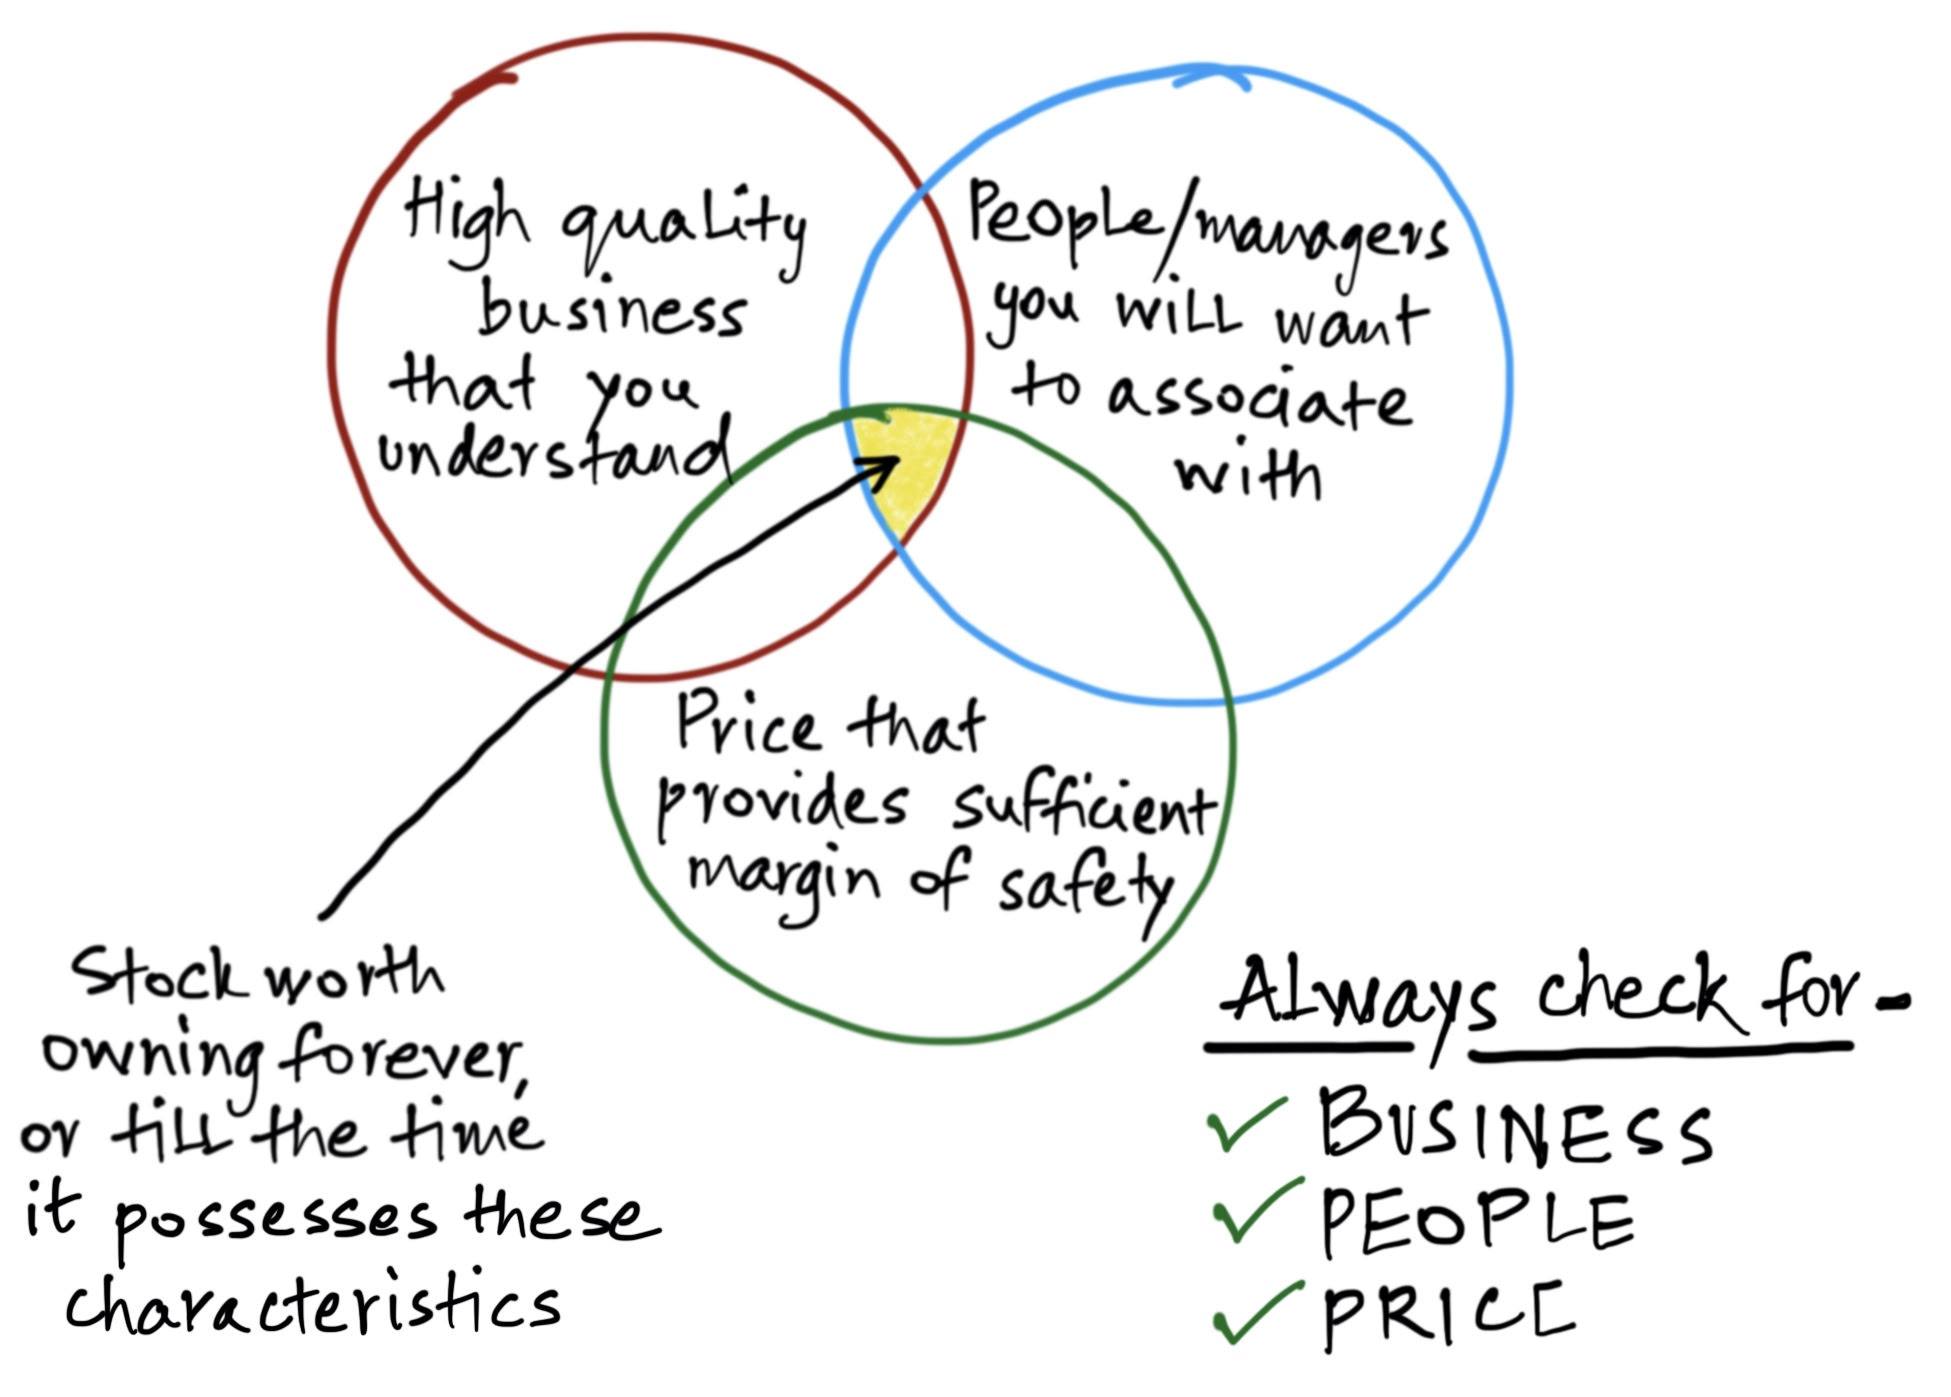 High quality
business
that you
understand
People/managers
you will want
to associate
with
Price that
provides sufficient
margin of safety
Stock worth
owning forever,
or till the time
it possesses these
characteristics
Always check for-
✓ BUSINESS
✓ PEOPLE
✓ PRICE